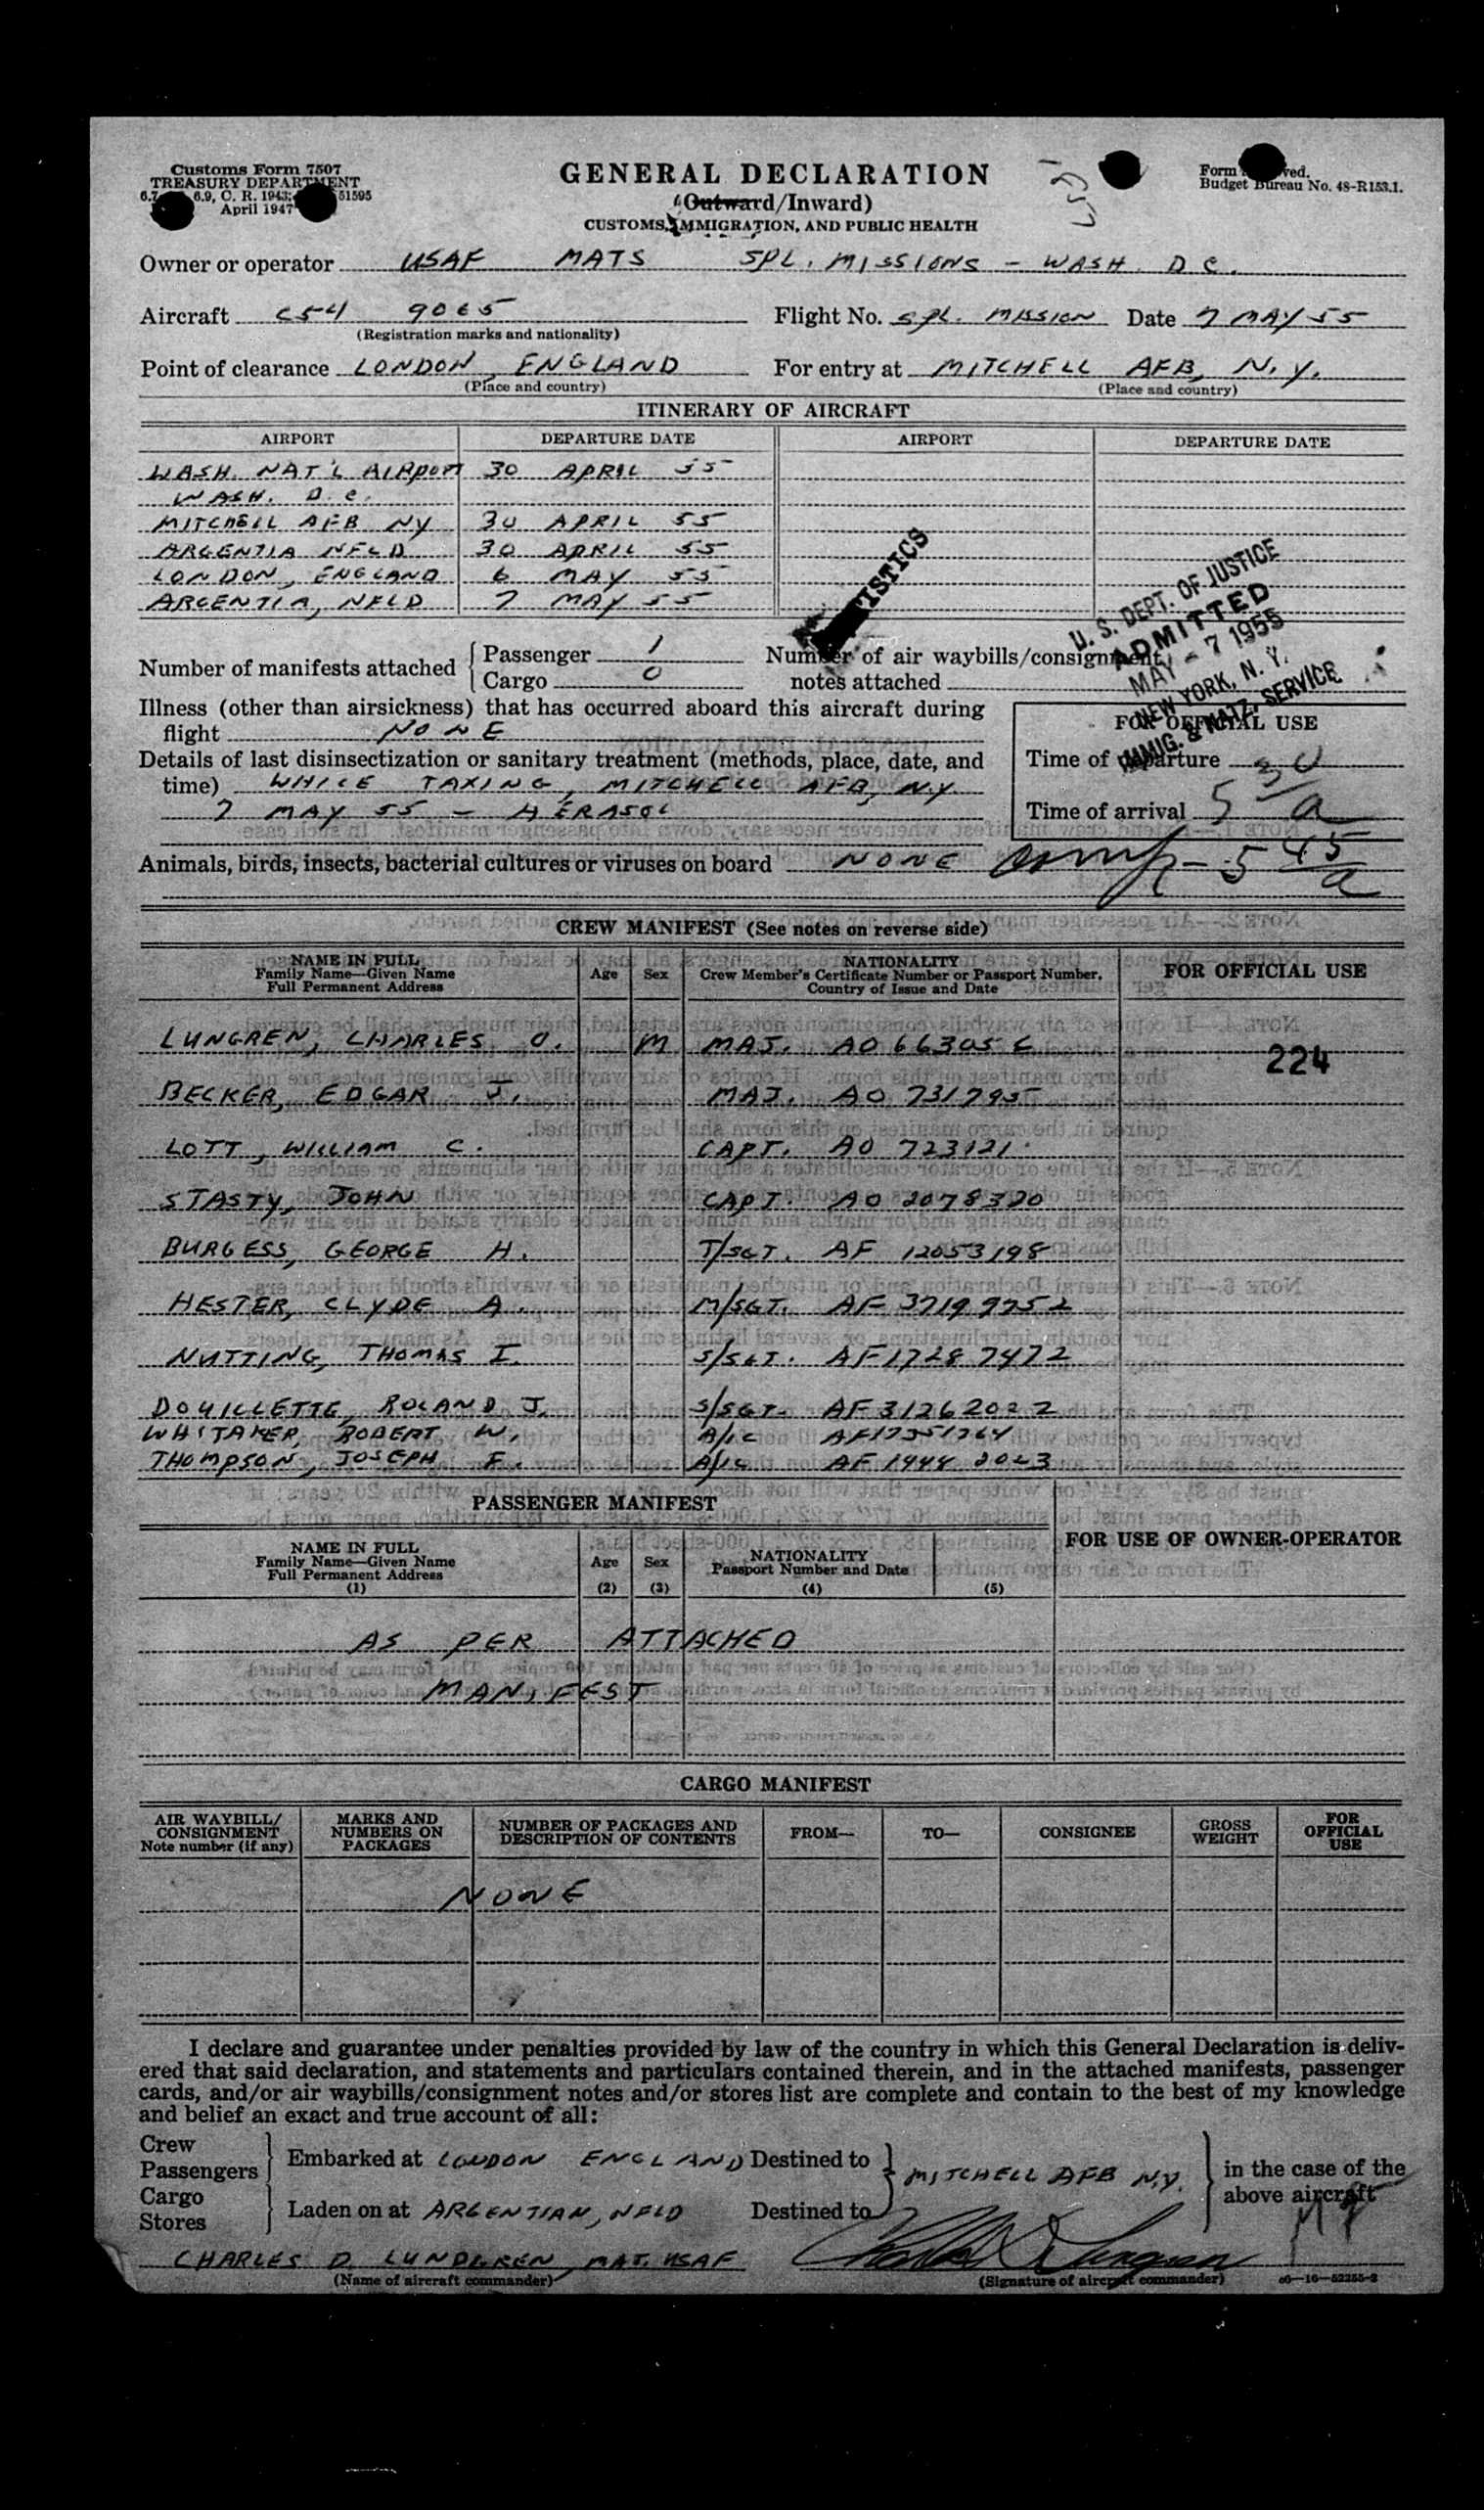 Customs Form 7507
TREASURY DEPARTMENT
6.9, C. R. 1943; 51595
April 1947
GENERAL DECLARATION
(Outward/Inward)
CUSTOMS, IMMIGRATION, AND PUBLIC HEALTH
Form
Budget Bureau No. 48-R153.1.
Owner or operator USAF MATS SPL. MISSIONS - WASH. D C.
Aircraft C54 9065 Flight No. SPL. MISSION Date 7 MAY 55
(Registration marks and nationality)
Point of clearance LONDON, ENGLAND For entry at MITCHELL AFB, N.Y.
(Place and country) (Place and country)
ITINERARY OF AIRCRAFT
AIRPORT DEPARTURE DATE AIRPORT DEPARTURE DATE
WASH. NAT'L AIRPORT 30 APRIL 55
WASH. D.C.
MITCHELL AFB NY 30 APRIL 55
ARGENTIA NFLD 30 APRIL 55
LONDON, ENGLAND 6 MAY 55
ARGENTIA, NFLD 7 MAY 55
U. S. DEPT. OF JUSTICE
ADMITTED
MAY - 7 1955
NEW YORK, N. Y.
IMMIG. & NATZ. SERVICE
Number of manifests attached { Passenger 1
Cargo 0
Number of air waybills/consignment
notes attached
Illness (other than airsickness) that has occurred aboard this aircraft during
flight NONE
Details of last disinsectization or sanitary treatment (methods, place, date, and
time) WHILE TAXING, MITCHELL AFB, N.Y.
7 MAY 55 - AERASOL
FOR OFFICIAL USE
Time of departure
Time of arrival 5 30 a
Animals, birds, insects, bacterial cultures or viruses on board NONE
5 45 a
CREW MANIFEST (See notes on reverse side)
NAME IN FULL
Family Name—Given Name
Full Permanent Address
Age Sex
NATIONALITY
Crew Member's Certificate Number or Passport Number,
Country of Issue and Date
FOR OFFICIAL USE
LUNGREN, CHARLES D. M MAJ. AO 663056
224
BECKER, EDGAR J. MAJ. AO 731795
LOTT, WILLIAM C. CAPT. AO 723121
STASTY, JOHN CAPT. AO 2078320
BURGESS, GEORGE H. T/SGT. AF 12053198
HESTER, CLYDE A. M/SGT. AF 37199752
NUTTING, THOMAS I. S/SGT. AF17287472
DOUILLETTE, ROLAND J. S/SGT. AF 31262022
WHITAKER, ROBERT W. A/1C AF17351764
THOMPSON, JOSEPH F. A/1C AF 1444 2023
PASSENGER MANIFEST
NAME IN FULL
Family Name—Given Name
Full Permanent Address
(1)
Age
(2)
Sex
(3)
NATIONALITY
Passport Number and Date
(4) (5)
FOR USE OF OWNER-OPERATOR
AS PER ATTACHED
MANIFEST
CARGO MANIFEST
AIR WAYBILL/
CONSIGNMENT
Note number (if any)
MARKS AND
NUMBERS ON
PACKAGES
NUMBER OF PACKAGES AND
DESCRIPTION OF CONTENTS
FROM—
TO—
CONSIGNEE
GROSS
WEIGHT
FOR
OFFICIAL
USE
NONE
I declare and guarantee under penalties provided by law of the country in which this General Declaration is deliv-
ered that said declaration, and statements and particulars contained therein, and in the attached manifests, passenger
cards, and/or air waybills/consignment notes and/or stores list are complete and contain to the best of my knowledge
and belief an exact and true account of all:
Crew
Passengers } Embarked at LONDON ENGLAND Destined to
MITCHELL AFB N.Y.
in the case of the
above aircraft
Cargo
Stores } Laden on at ARGENTIAN, NFLD Destined to
CHARLES D. LUNDGREN, MAJ. USAF
(Name of aircraft commander) (Signature of aircraft commander) 16—52255-2